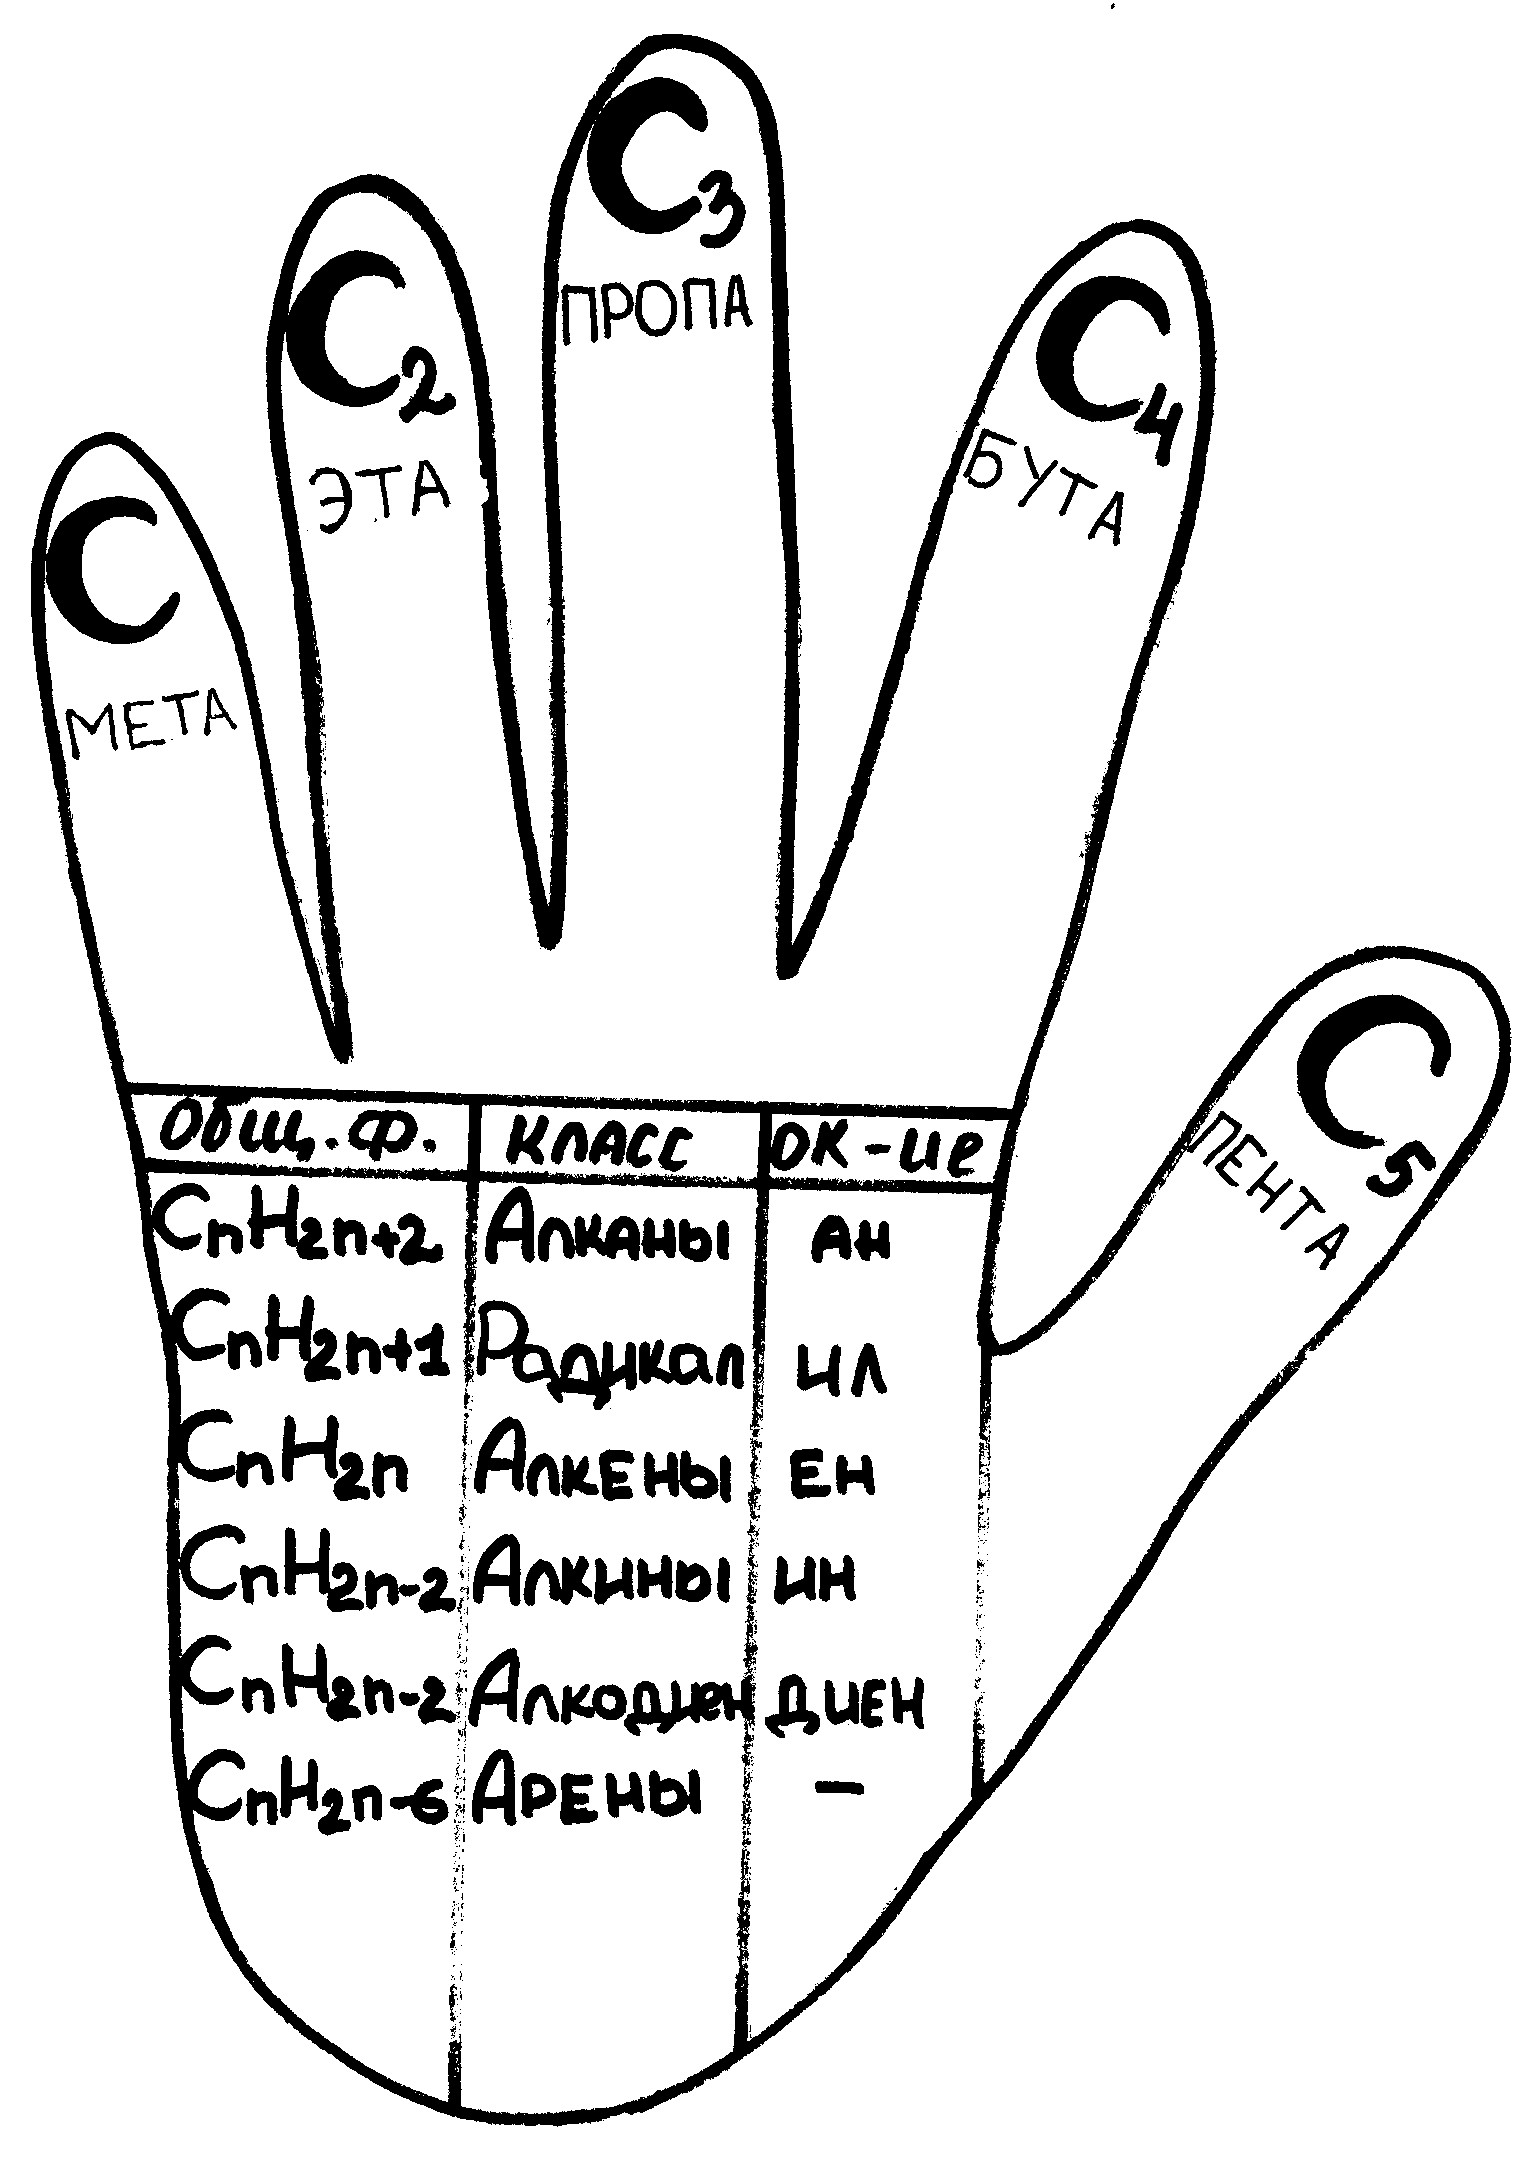 C₃
ПРОПА
C₂
ЭТА
C₄
БУТА
C
МЕТА
C₅
ПЕНТА
Общ. Ф. Класс ОК-ие
CnH2n+2 Алканы ан
CnH2n+1 Радикал ил
CnH2n Алкены ен
CnH2n-2 Алкины ин
CnH2n-2 Алкодиен диен
CnH2n-6 Арены –